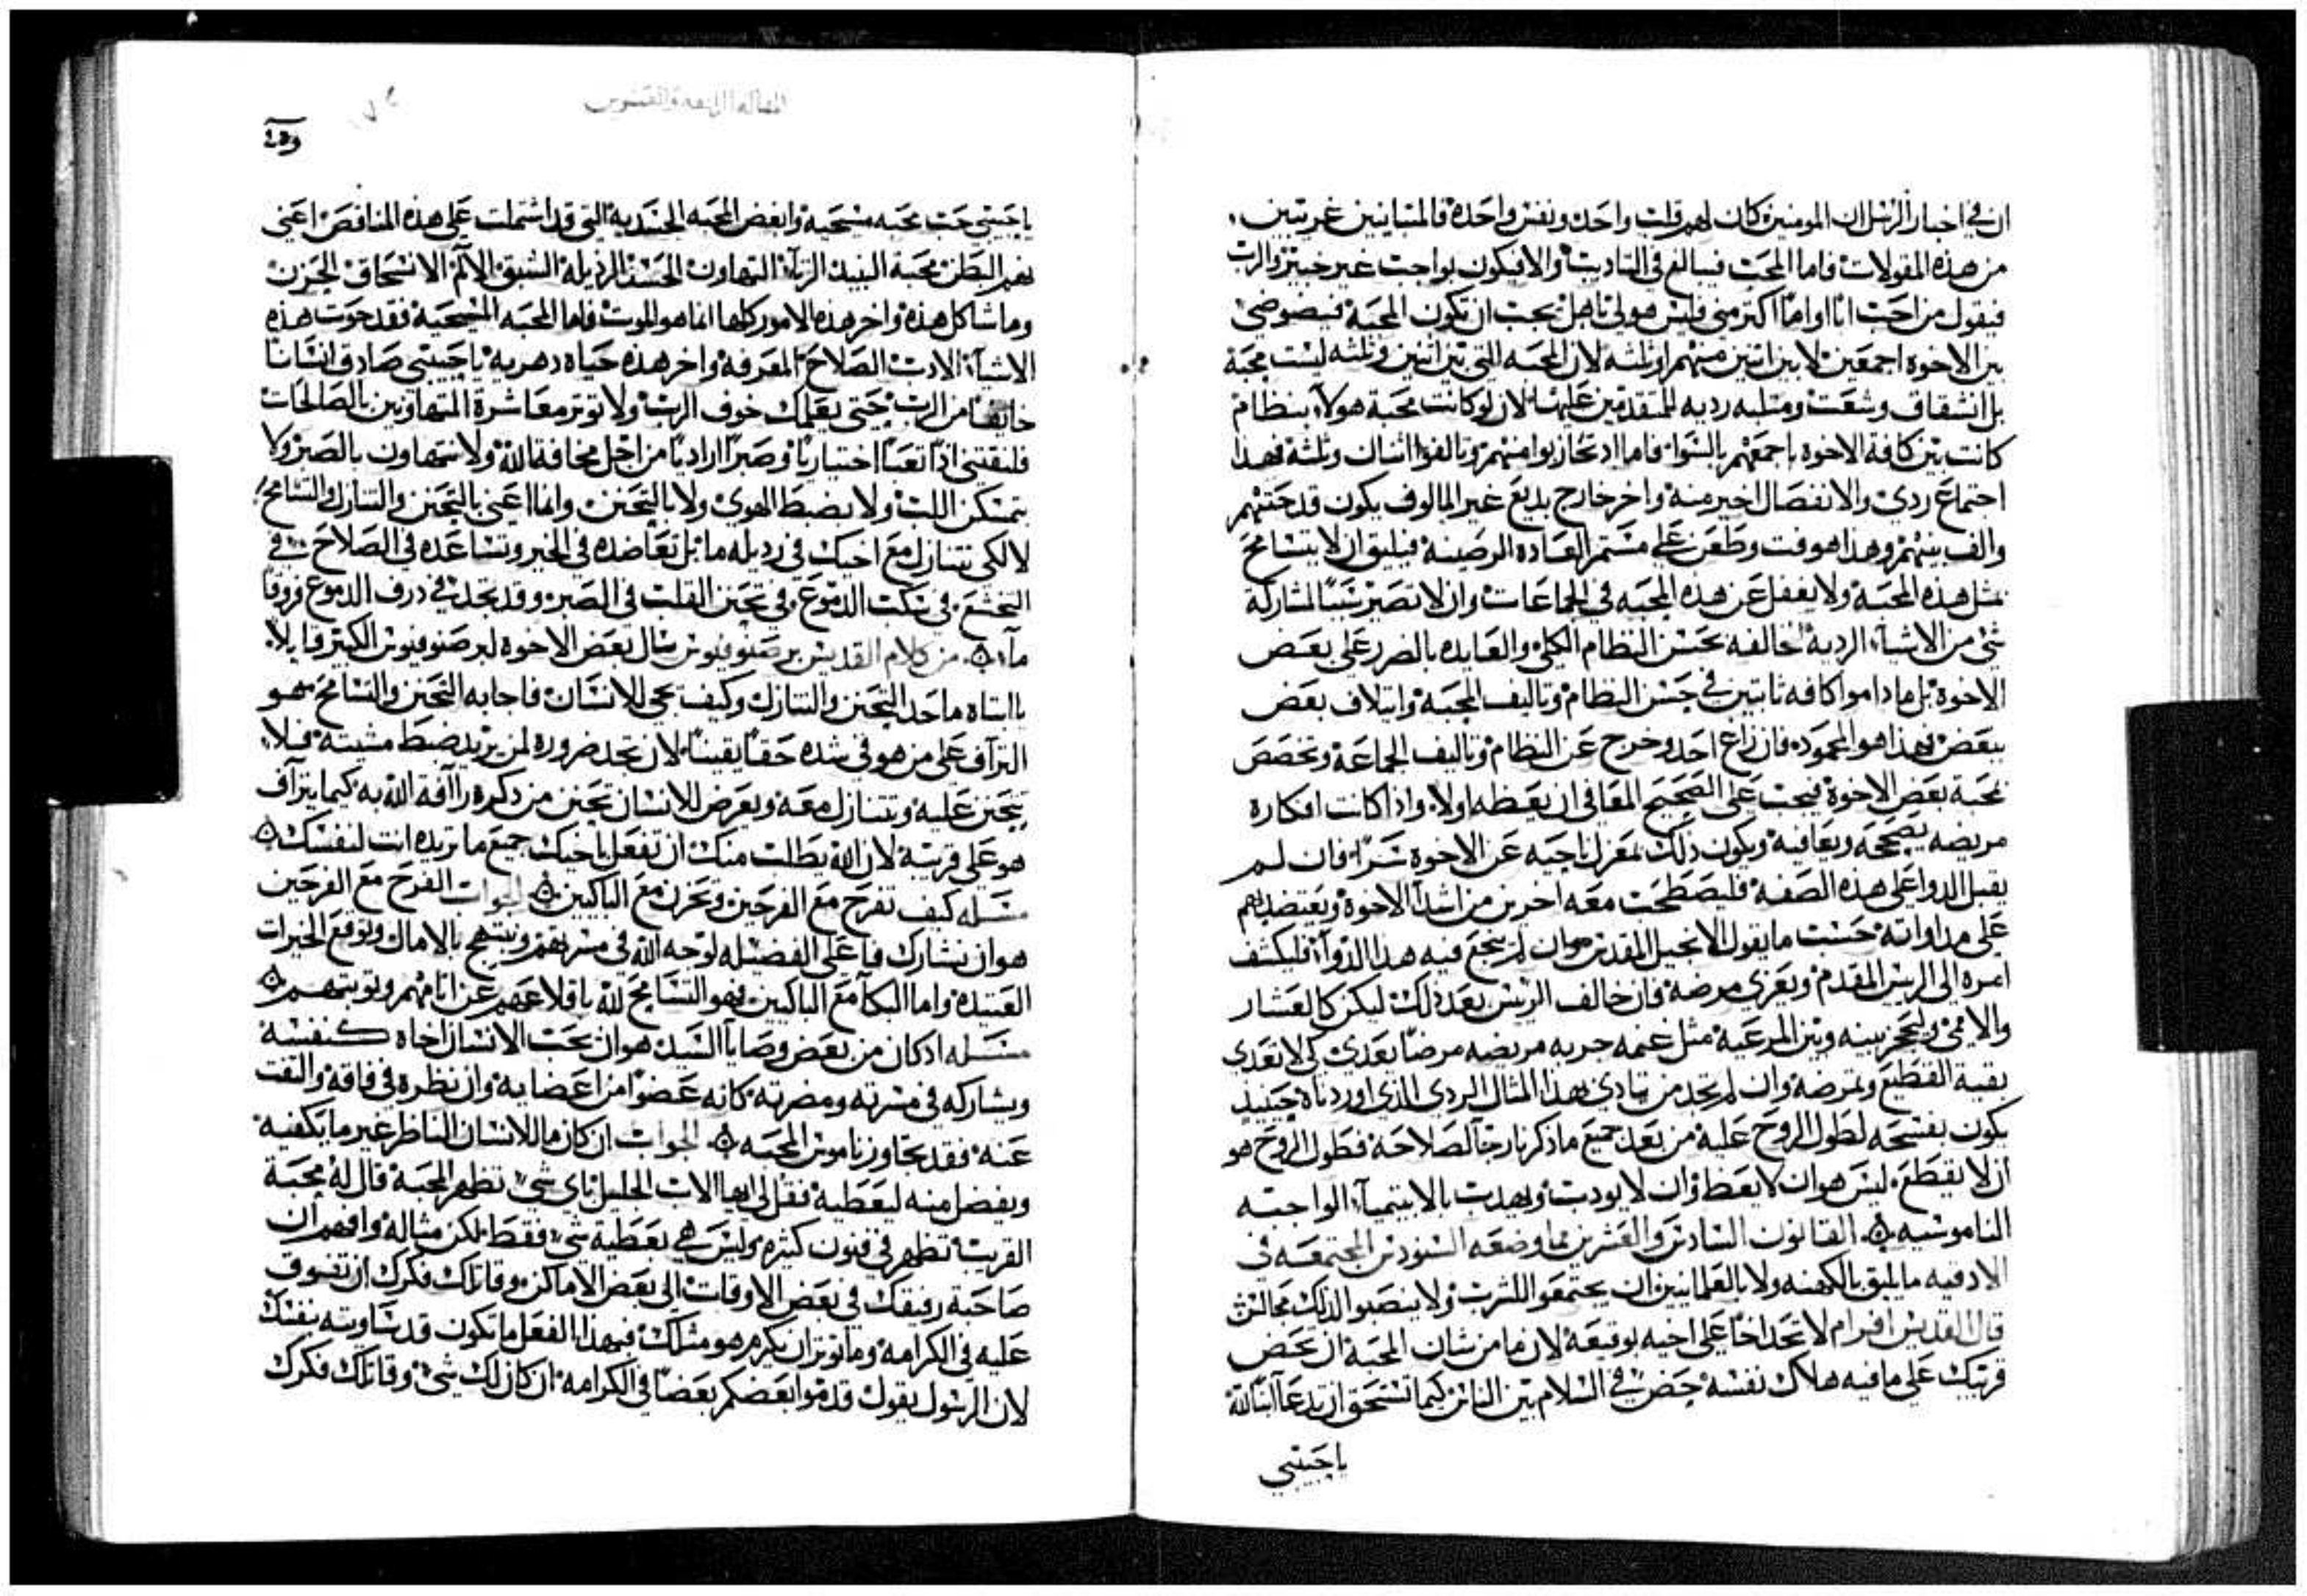 ان في اخبار الرسل ان المومنين كان لهم قلب واحد ونفس واحدة فالمتباينين غريبين
من هذه المقولات فاما المحب فيبالغ في التاديب والا فيكون بواجب غير خبير والرب
فيقول من احب ابا او اما اكتر مني فليس هو لي باهل يجب ان تكون المحبة فيضوضي
بين الاخوة اجمعين لا بين اتنين منهم او تلثه لان المحبه التي بين اتنين وتلثه ليست محبة
بل انشقاق وشعت ومتلبه رديه للمتقدمين عليها لان لو كانت محبة هولاء بنظام
كانت بين كافة الاخوة باجمعهم بالسوا فاما اد تحازبوا منهم وتالفوا اتنان وتلثه فهدا
اجتماع ردي والانفصال اخير منه واخر خارج بديع غير المالوف يكون قد حتهم
والف بينهم وهذا هو فت وطعن على مستمر العادة الرصينة فيليق ان لا يتسامح
بمثل هذه المحبة ولا يغفل عن هذه المحبه في الجماعات وان لا تصير سببا لمشاركة
شي من الاشياء الردية مخالفه بحسن النظام الكلي والعايده بالضرر على بعض
الاخوة بل ما داموا كافه ثابتين في حسن النظام وتاليف المحبة وايتلاف بعض
ببعض فهذا هو المحمود فان زاغ احد وخرج عن النظام وتاليف الجماعة وتخصص
بمحبة بعض الاخوة فيجب على الصحيح المعافى ان يعظه اولا واذا كانت افكاره
مريضه يصححه ويعافيه ويكون ذلك بمعزل ناحيه عن الاخوة سرا فان لم
يقبل الدوا على هذه الصفة فليصطحب معه اخرين من اشدا الاخوة ويعتضد بهم
على مداواته حسب ما يقول الانجيل المقدس وان لم ينجع فيه هذا الدواء فليكشف
امره الى الريس المقدم ويعزى مرضه فان خالف الريس بعد ذلك ليكن كالعشار
والامي وليحجز بينه وبين المرعية مثل غنمه جربه مريضه مرضا يعدي كي لا تعدى
بقية القطيع وتمرضه وان لم تجد من يتادى بهذا المثال الردي الذي اوردناه حينيد
يكون بفسحه لطول الروح عليه من بعد جميع ما ذكرنا رجا لصلاحه فطول الروح هو
ان لا يقطع ليس هو ان لا يعظ وان لا يودب ويهدب بالابتيمياء الواجبه
الناموسيه القانون السادس والعشرين مما وضعه السنودس المجتمعه في
الادقيه ما يليق بالكهنه ولا بالعلمانيين ان يجتمعوا للشرب ولا ينصبوا لذلك مجالس
قال القديس افرام لا تحد اخا على اخيه بوقيعة لان ما من شان المحبة ان تحض
قريبك على ما فيه هلاك نفسه حض في السلام بين الناس كيما تستحق ان تدعا ابنا لله
ياحبيبي
المقاله الرابعه والعشرون
ياحبيبي حب محبه مسيحية وابغض المحبه الجسديه التي قد اشتملت على هذه المناقص اعني
نهم البطن محبة النبيد الزناء التهاون الحسد الرذيله الشبق الالم الانسحاق الحزن
وما شاكل هذه واخر هذه الامور كلها انما هو الموت فاما المحبه المسيحية فقد حوت هذه
الاشياء الادب الصلاح المعرفة واخر هذه حياة دهرية ياحبيبي صادق انسانا
خايفا من الرب حتى يعلمك خوف الرب ولا توتر معاشرة المتهاونين بالصالحات
فلنقتني اذا تعبا اختياريا وصبرا اراديا من اجل مخافة الله ولا نتهاون بالصبر ولا
بتمسكن اللب ولا بضبط الهوى ولا بالتحنن وانما اعني بالتحنن والتنازل والتسامح
لا لكي تتنازل مع اخيك في رديله ما بل تعاضده في الخير وتساعده في الصلاح في
التخشع في سكب الدموع في تحنن القلب في الصبر وقد تجد في درف الدموع فروقا
ماء من كلام القديس برصنوفيوس سال بعض الاخوة لبرصنوفيوس الكبير قايلا
يا ابتاه ما حد التحنن والتنازل وكيف يجي للانسان فاجابه التحنن والتسامح هو
التراف على من هو في شده حقا يقينا لان تجد ضرورة لمن يريد ضبط مشيته فلا
يتحنن عليه ويتنازل معه ويعرض للانسان تحنن من دكره رافة الله به كيما يتراف
هو على قريبه لان الله يطلب منك ان تفعل باخيك جميع ما تريده انت لنفسك
مسله كيف تفرح مع الفرحين وتحزن مع الباكين الجواب الفرح مع الفرحين
هو ان نشارك فاعلى الفضيله لوجه الله في مسرتهم ونبتهج بالامال وتوقع الخيرات
العتيدة واما البكا مع الباكين فهو التسامح لله باقلاعهم عن اتامهم وتوبتهم
مسله اد كان من بعض وصايا السيد هو ان يحب الانسان اخاه كنفسه
ويشاركه في مسرته ومضرته كانه عضوا من اعضايه وان نظره في فاقة والتفت
عنه فقد تجاوز ناموس المحبه الجواب ان كان ما للانسان الناظر غير ما يكفيه
ويفضل منه ليعطيه فقل لي ايها الاب الجليل باي شي تظهر المحبة قال له محبة
القريب تظهر في فنون كثيره وليس هي بعطية شي فقط لكن مثاله وافهم ان
صاحبة رفيقك في بعض الاوقات الى بعض الاماكن وقاتلك فكرك ان تتفوق
عليه في الكرامه وما توتر ان يكرم هو مثلك فبهذا الفعل ما تكون قد ساويته بنفسك
لان الرسول يقول قدموا بعضكم بعضا في الكرامه ان كان لك شي وقاتلك فكرك